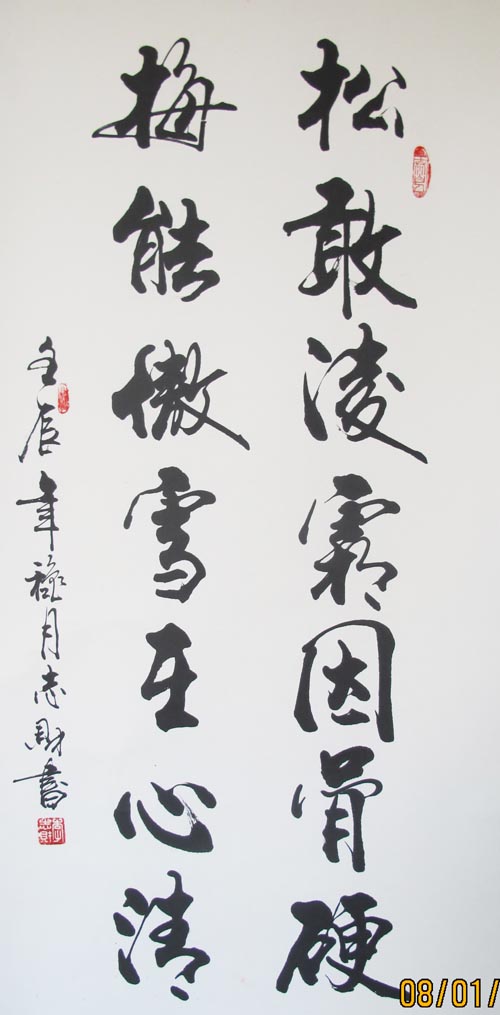 松敢淩霜因骨硬
梅能傲雪在心清
壬辰年禄月志财書
08/01/